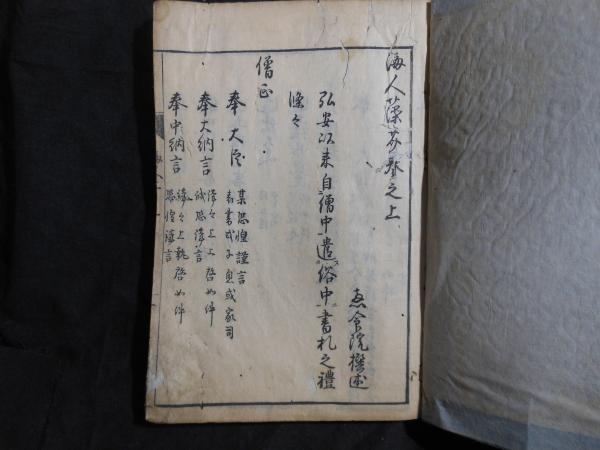 海人藻芥巻之上
恵命院撰述
弘安以来自僧中遣俗中書札之禮
條々
僧正
奉大臣
某恐惶謹言
表書或子息或家司
奉大納言
上啓如件
恐謹言
奉中納言
上執啓如件
恐惶謹言